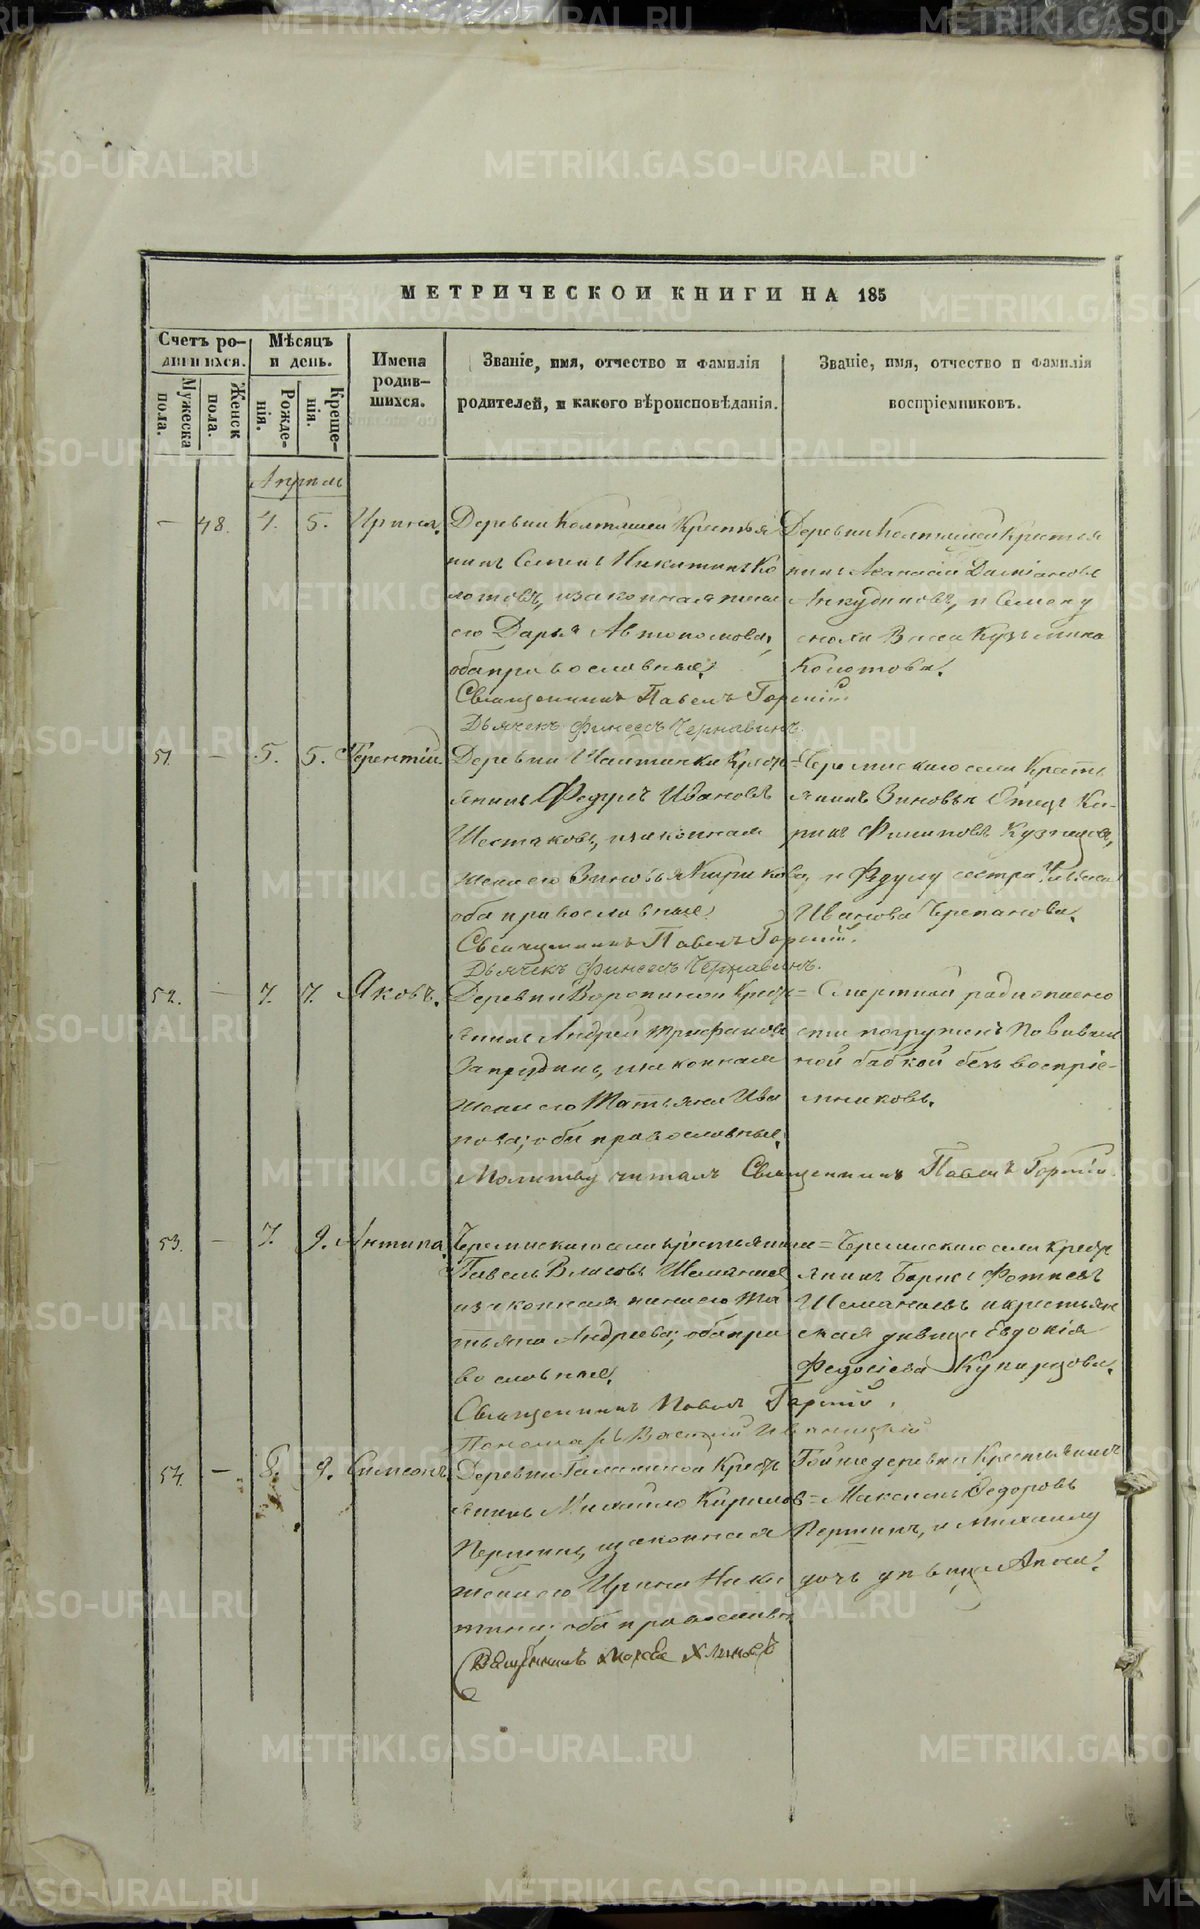 МЕТРИЧЕСКОЙ КНИГИ НА 185
Счетъ ро-
дившихся.
Мужеска
пола.
Женск
пола.
Мѣсяцъ
и день.
Рожде-
нія.
Креще-
нія.
Имена
родив-
шихся.
Званіе, имя, отчество и фамилія
родителей, и какого вѣроисповѣданія.
Званіе, имя, отчество и фамилія
воспріемниковъ.
Апрель
— 48. 4. 5. Ирина.
Деревни Колташей Крестья
нинъ Семенъ Никитинъ Ко
лотовъ, и законная жена
его Дарья Автономова,
оба православные.
Священникъ Павелъ Горній
Дьячекъ Финеесъ Чернавинъ.
Деревни Колташей Крестья
нинъ Афанасій Даміановъ
Анкудиновъ, и Семену
сноха Васса Кузьмина
Колотова.
51. — 5. 5. Терентій.
Деревни Шайтанки Крест
янинъ Федулъ Ивановъ
Шестаковъ, и законная
жена его Зиновья Кирикова,
оба православные.
Священникъ Павелъ Горній.
Дьячекъ Финеесъ Чернавинъ.
Черемискаго села Кресть
янинъ Зиновьи Отецъ Ки-
рикъ Филиповъ Кузнецов,
и Федулу сестра
Иванова Черепанова.
52. — 7. 7. Яковъ.
Деревни Ворониной Крест
янинъ Андрей Трифановъ
Запрудинъ, и законная
жена его Татьяна Ива
нова; оба православные.
Молитву читалъ Священникъ Павелъ Горній.
Смертной ради опасно
сти погруженъ повиваль
ной бабкой безъ воспріе-
мниковъ.
53. — 7. 9. Антипа.
Черемискаго села крестьянинъ
Павелъ Власовъ Шаманаев
и законная жена его Та
тьяна Андреева; оба пра
вославные.
Священникъ Павелъ Горній.
Пономарь Васлий
Черемискаго села крест
янинъ Борисъ Фотиевъ
Шаманаевъ и крестьян
ская девица Евдокія
Федосіева
54. — 8. 9. Симеонъ
Деревни Галаниной Крест
янинъ Михайло Кириловъ
Першинъ, и законная
жена его Ирина Ники
тина; оба православн.
Священникъ
Той же деревни Крестьянинъ
Максимъ Федоровъ
Першинъ, и Михаилу
дочь девица Анна.